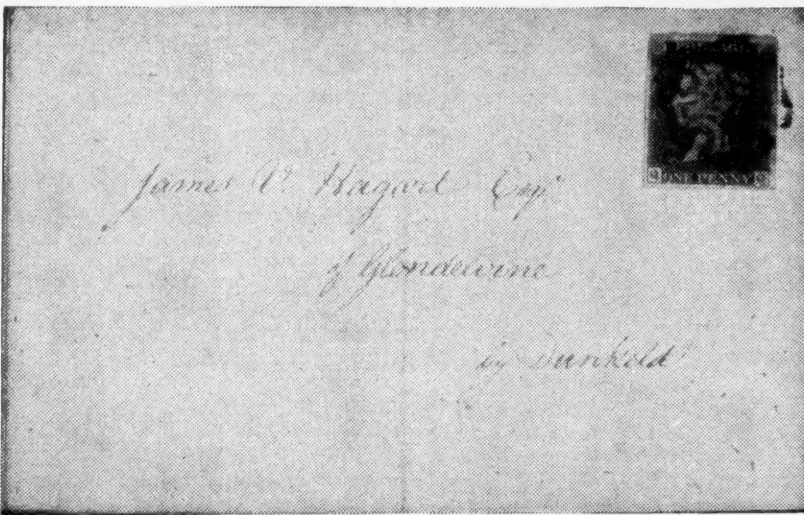 POSTAGE
Q ONE PENNY
James V. Hagart Esqr
of Glendelvine
by Dunkeld